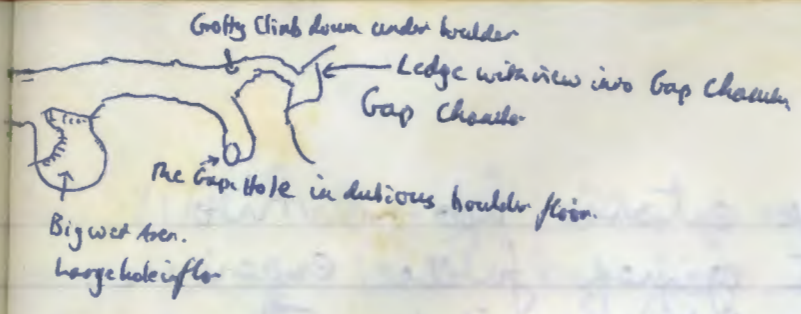 Grotty Climb down under boulder
Ledge with view into Gap Chamber
Gap Chamber
The Gap. Hole in dubious boulder floor.
Big wet Area.
Large hole in flo